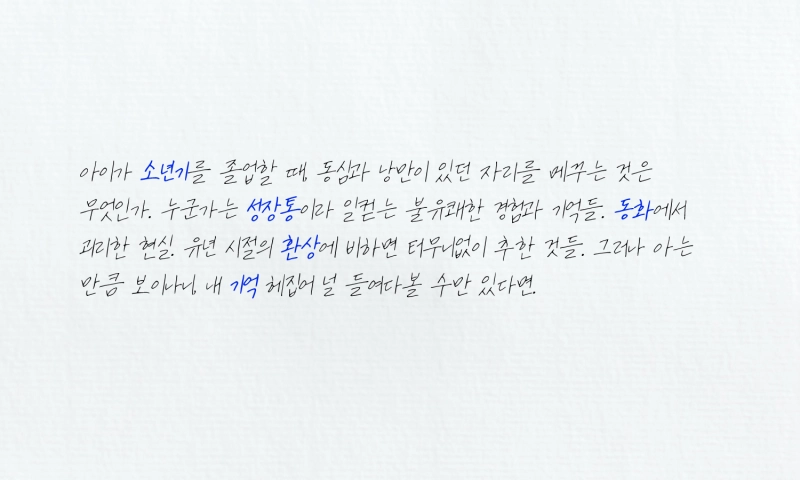 아이가 소년기를 졸업할 때, 동심과 낭만이 있던 자리를 메꾸는 것은
무엇인가. 누군가는 성장통이라 일컫는 불유쾌한 경험과 기억들. 동화에서
괴리한 현실. 유년 시절의 환상에 비하면 터무니없이 추한 것들. 그러나 아는
만큼 보이나니, 내 기억 헤집어 널 들여다볼 수만 있다면.